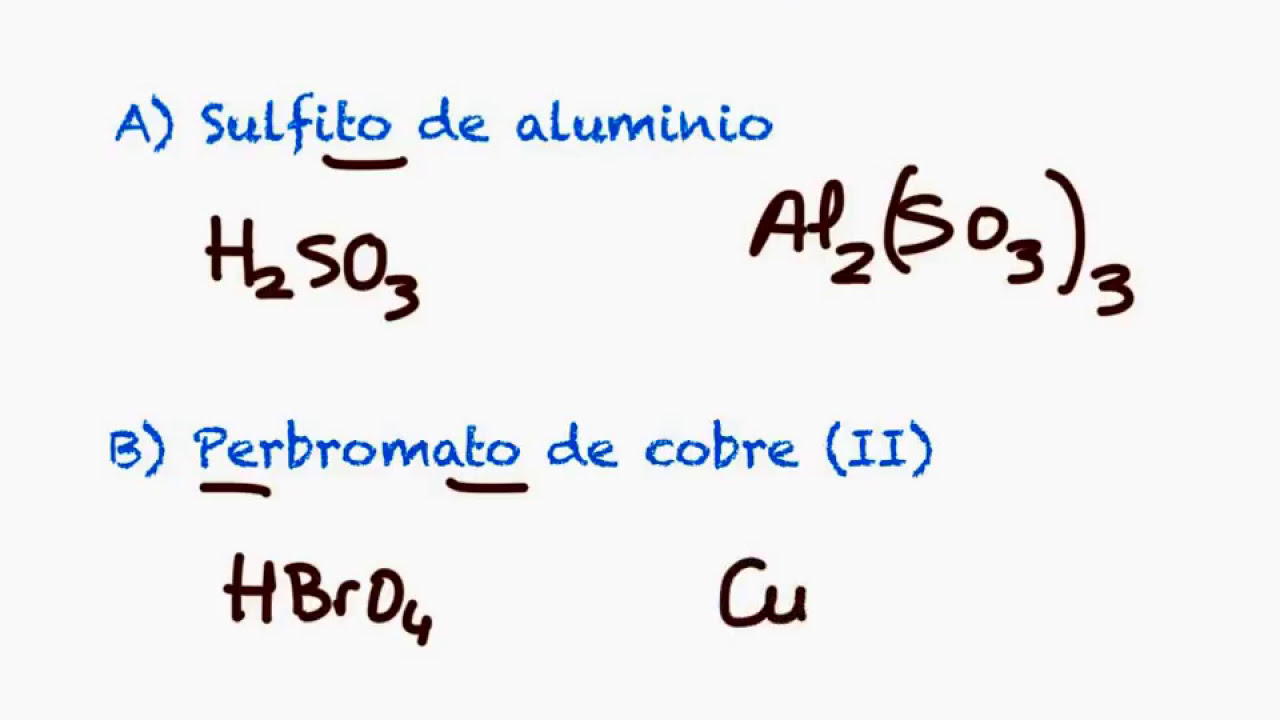 A) Sulfito de aluminio
H₂SO₃ Al₂(SO₃)₃
B) Perbromato de cobre (II)
HBrO₄ Cu